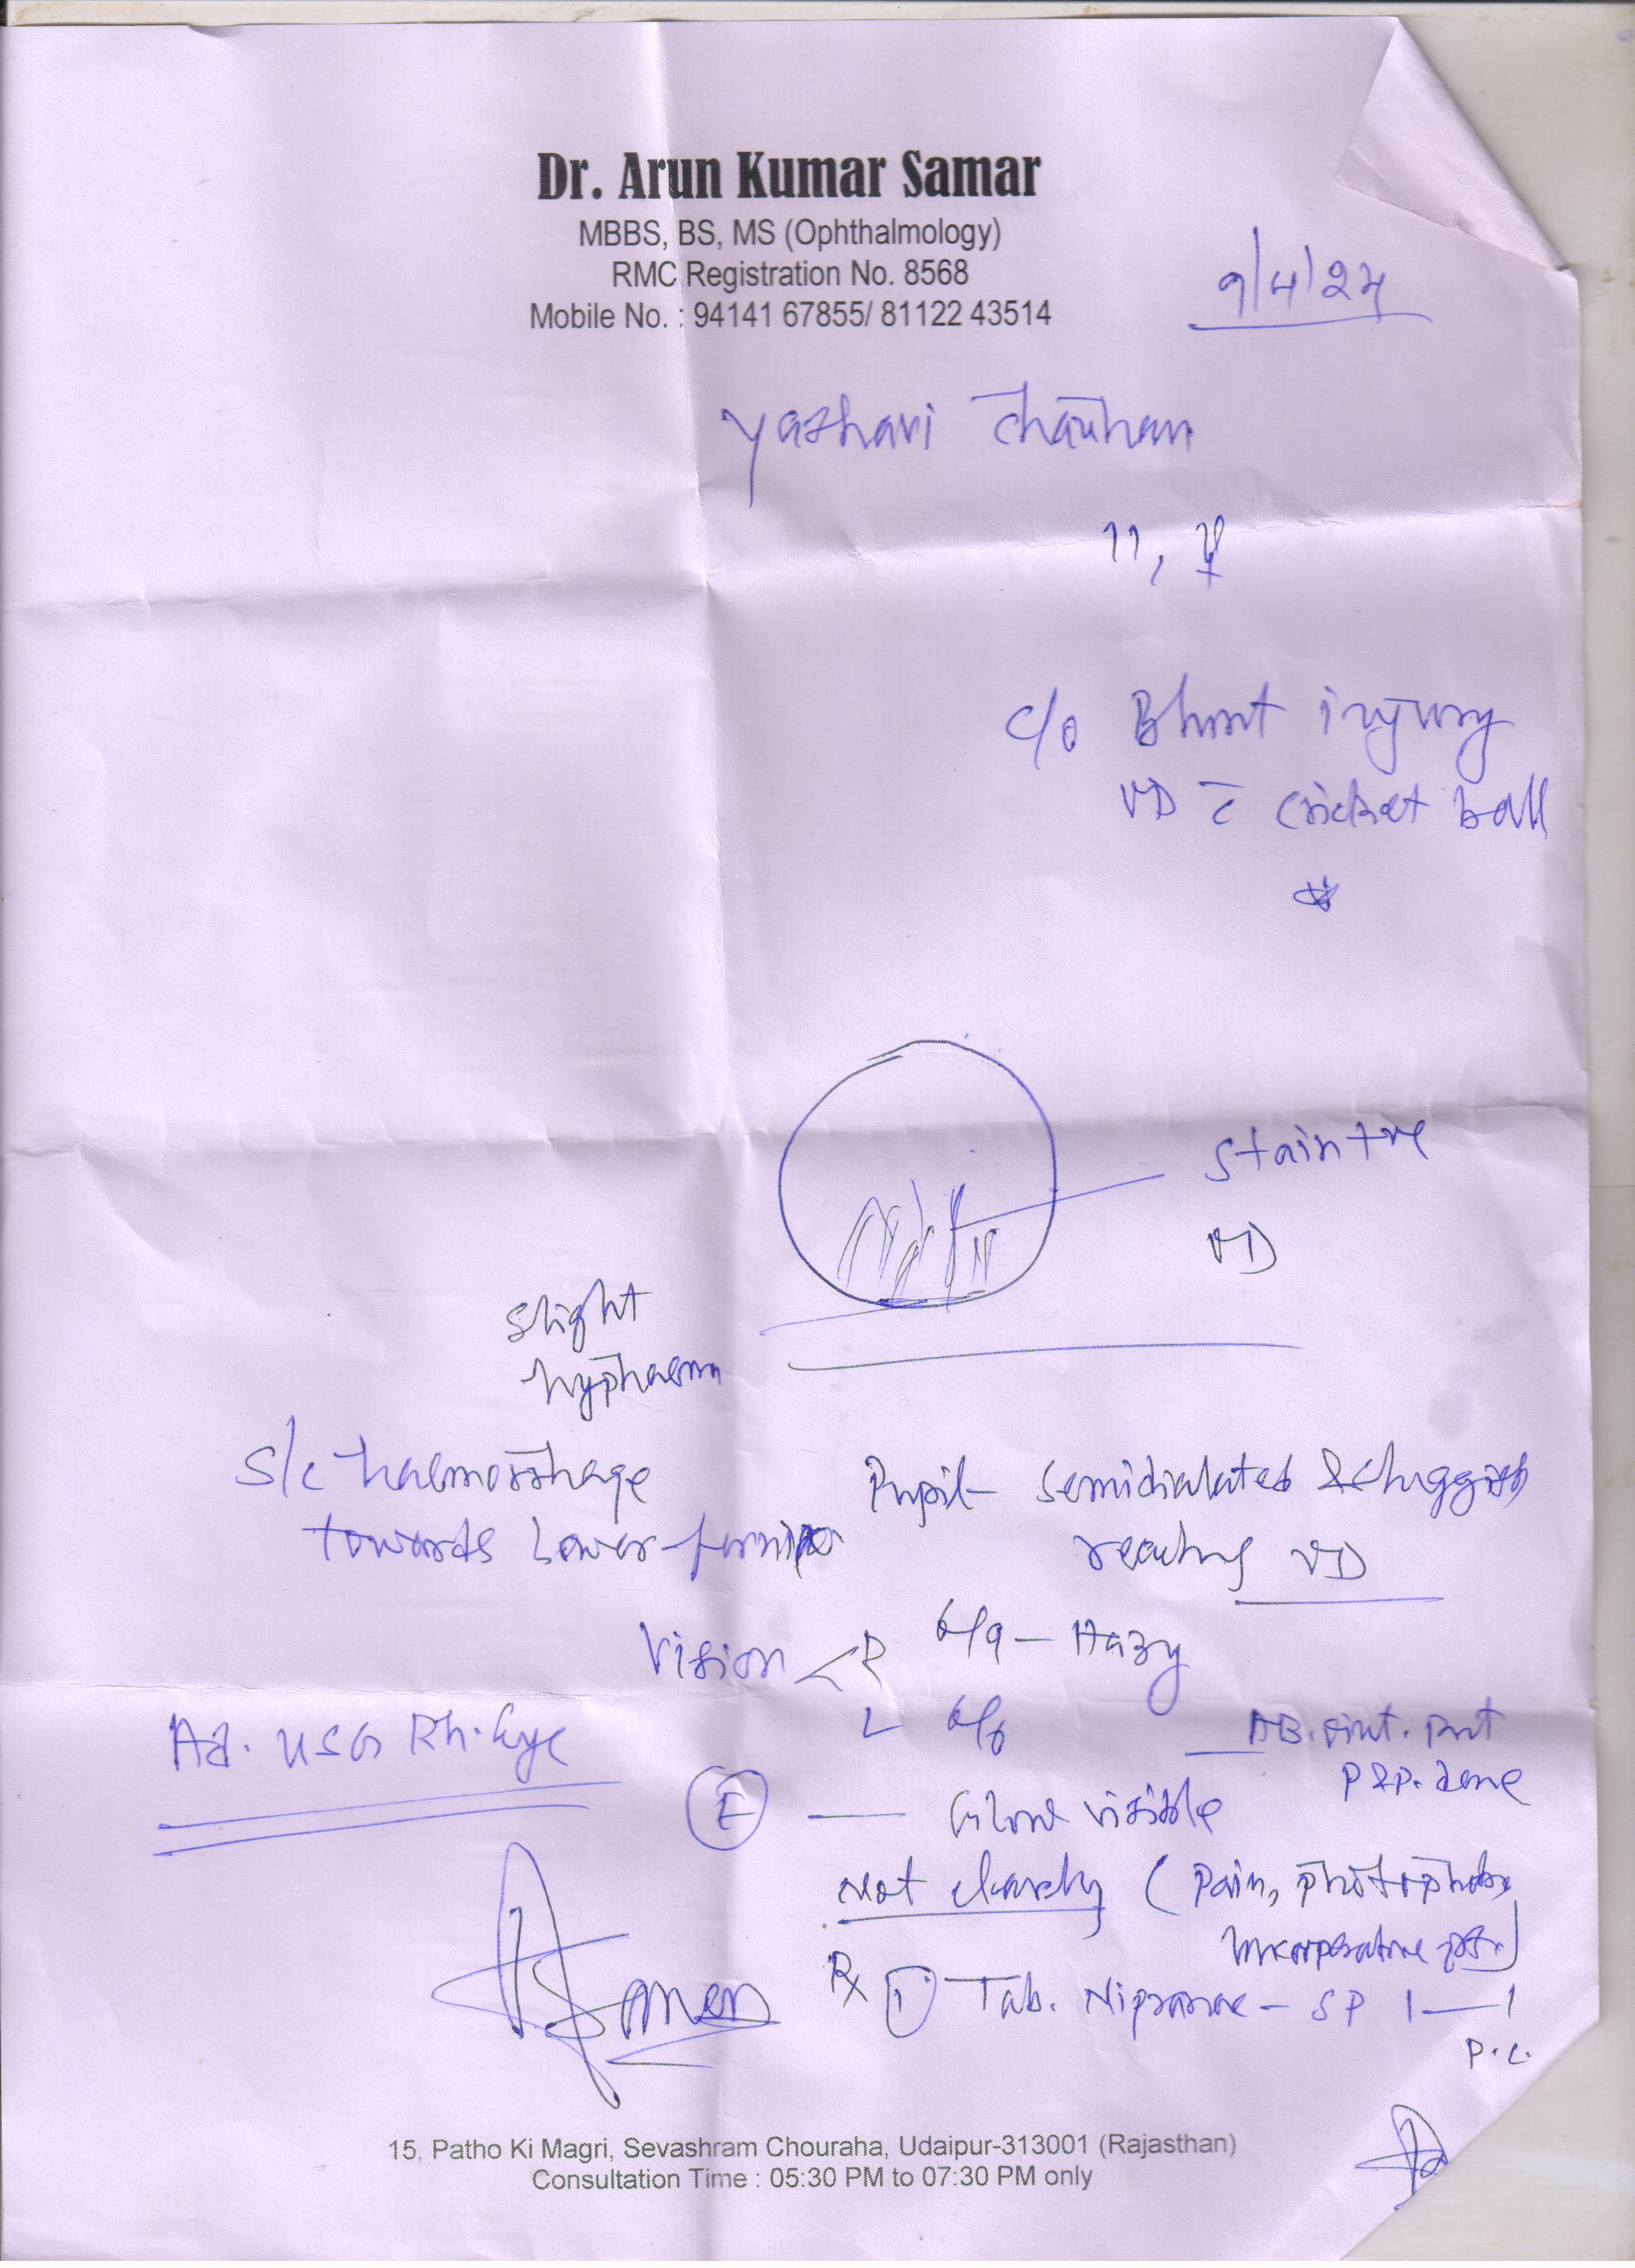 Dr. Arun Kumar Samar
MBBS, BS, MS (Ophthalmology)
RMC Registration No. 8568
Mobile No. : 94141 67855/ 81122 43514
9/4/24
Yashavi Chauhan
11, F
c/o Blunt injury
VD c̄ cricket ball
Stain +ve
VD
Slight
hyphaema
S/c haemorrhage
towards Lower fornix
Pupil - Semidialated & sluggish
reacting VD
Vision < R 6/9 - Hazy
L 6/6
AB. oint. put
P & P. done
Ad. USG Rh. Eye
F — Glow visible
not clearly (Pain, photophobia,
incorporative pt.)
Rx 1 Tab. SP 1 — 1
P.C.
15, Patho Ki Magri, Sevashram Chouraha, Udaipur-313001 (Rajasthan)
Consultation Time : 05:30 PM to 07:30 PM only